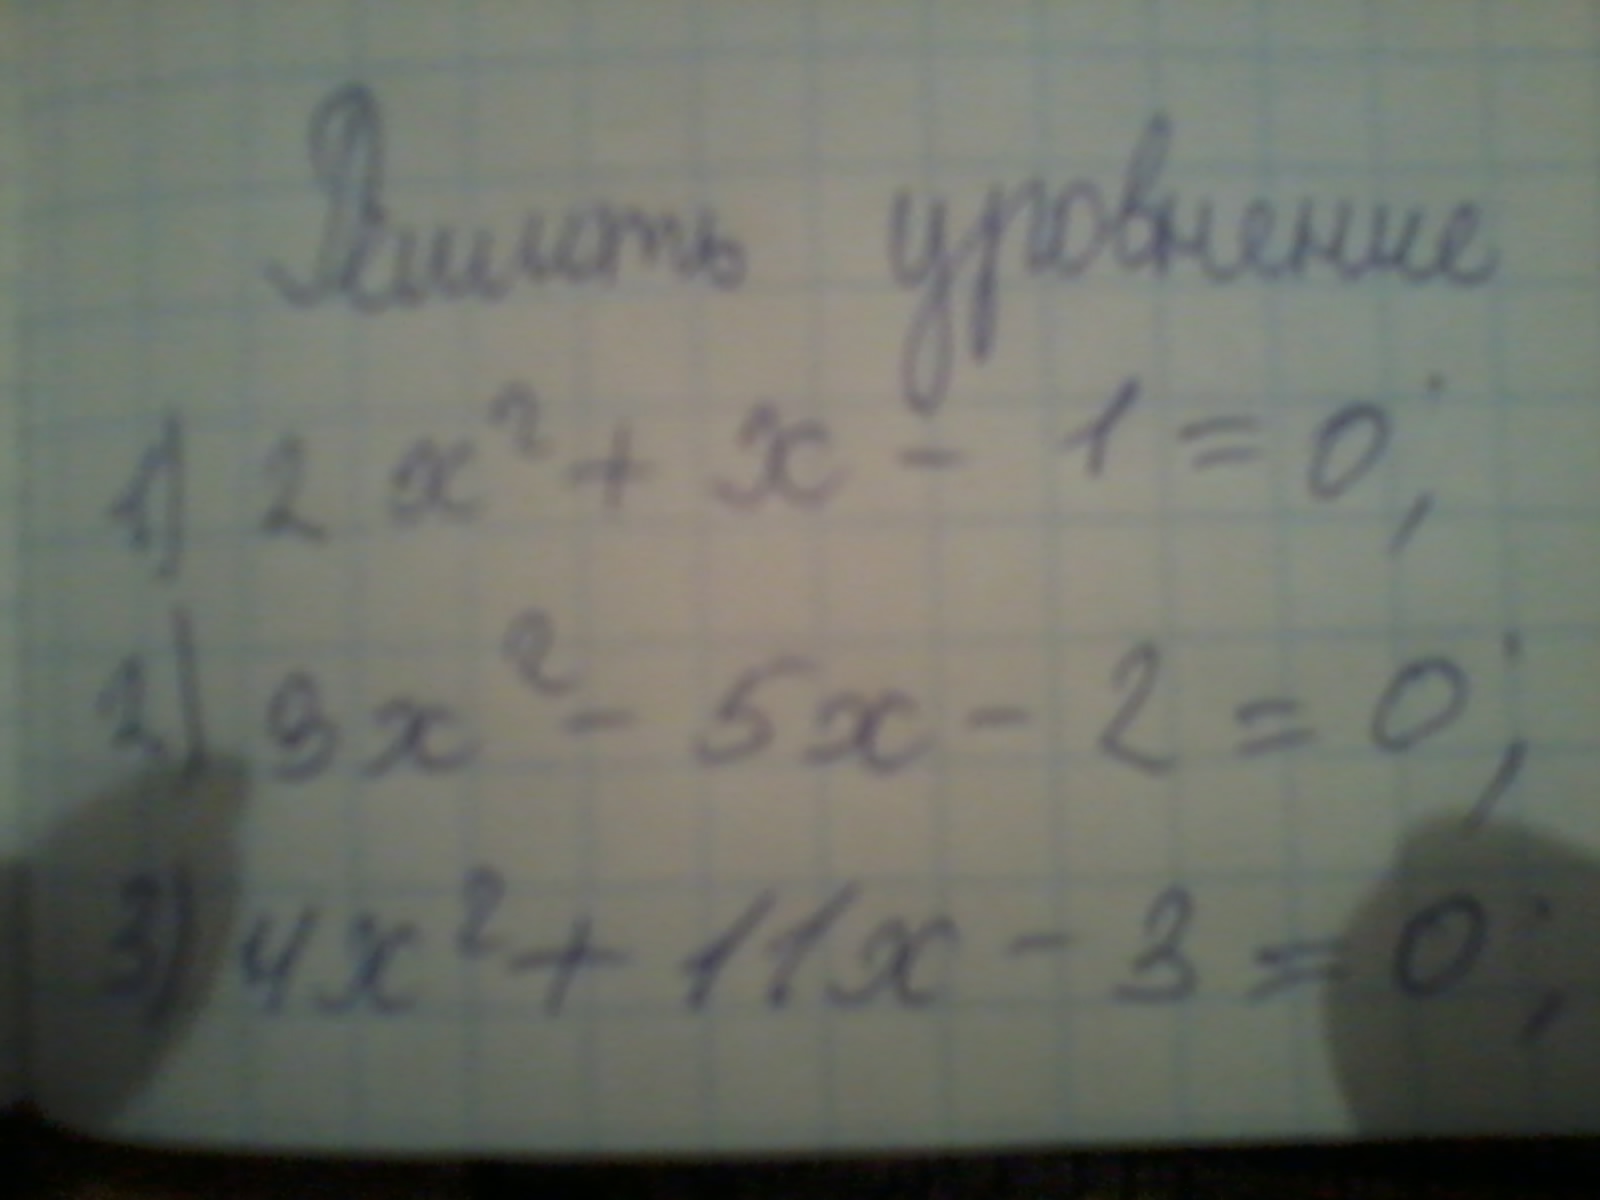 Решить уравнение
1) 2x² + x - 1 = 0;
2) 3x² - 5x - 2 = 0;
3) 4x² + 11x - 3 = 0;